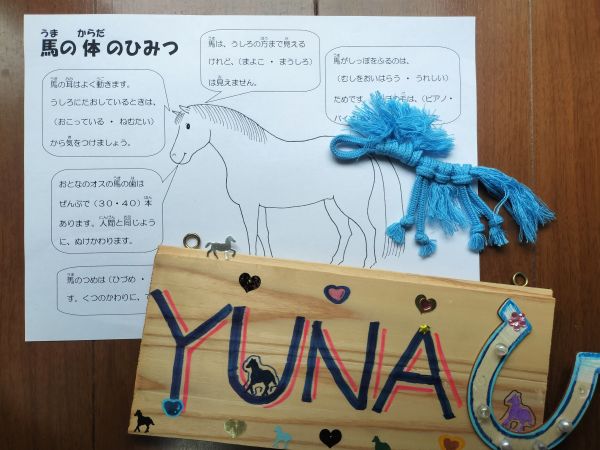 馬の体のひみつ
馬は、うしろの方まで見える
けれど、(まよこ ・ まうしろ)
は見えません。
馬がしっぽをふるのは、
(むしをおいはらう ・ うれしい)
ためです。
(ピアノ・
バイ
馬の耳はよく動きます。
うしろにたおしているときは、
(おこっている ・ ねむたい)
から気をつけましょう。
おとなのオスの馬の歯は
ぜんぶで(30・40)本
あります。人間と同じよう
に、ぬけかわります。
馬のつめは(ひづめ ・
す。くつのかわりに、
YUNA